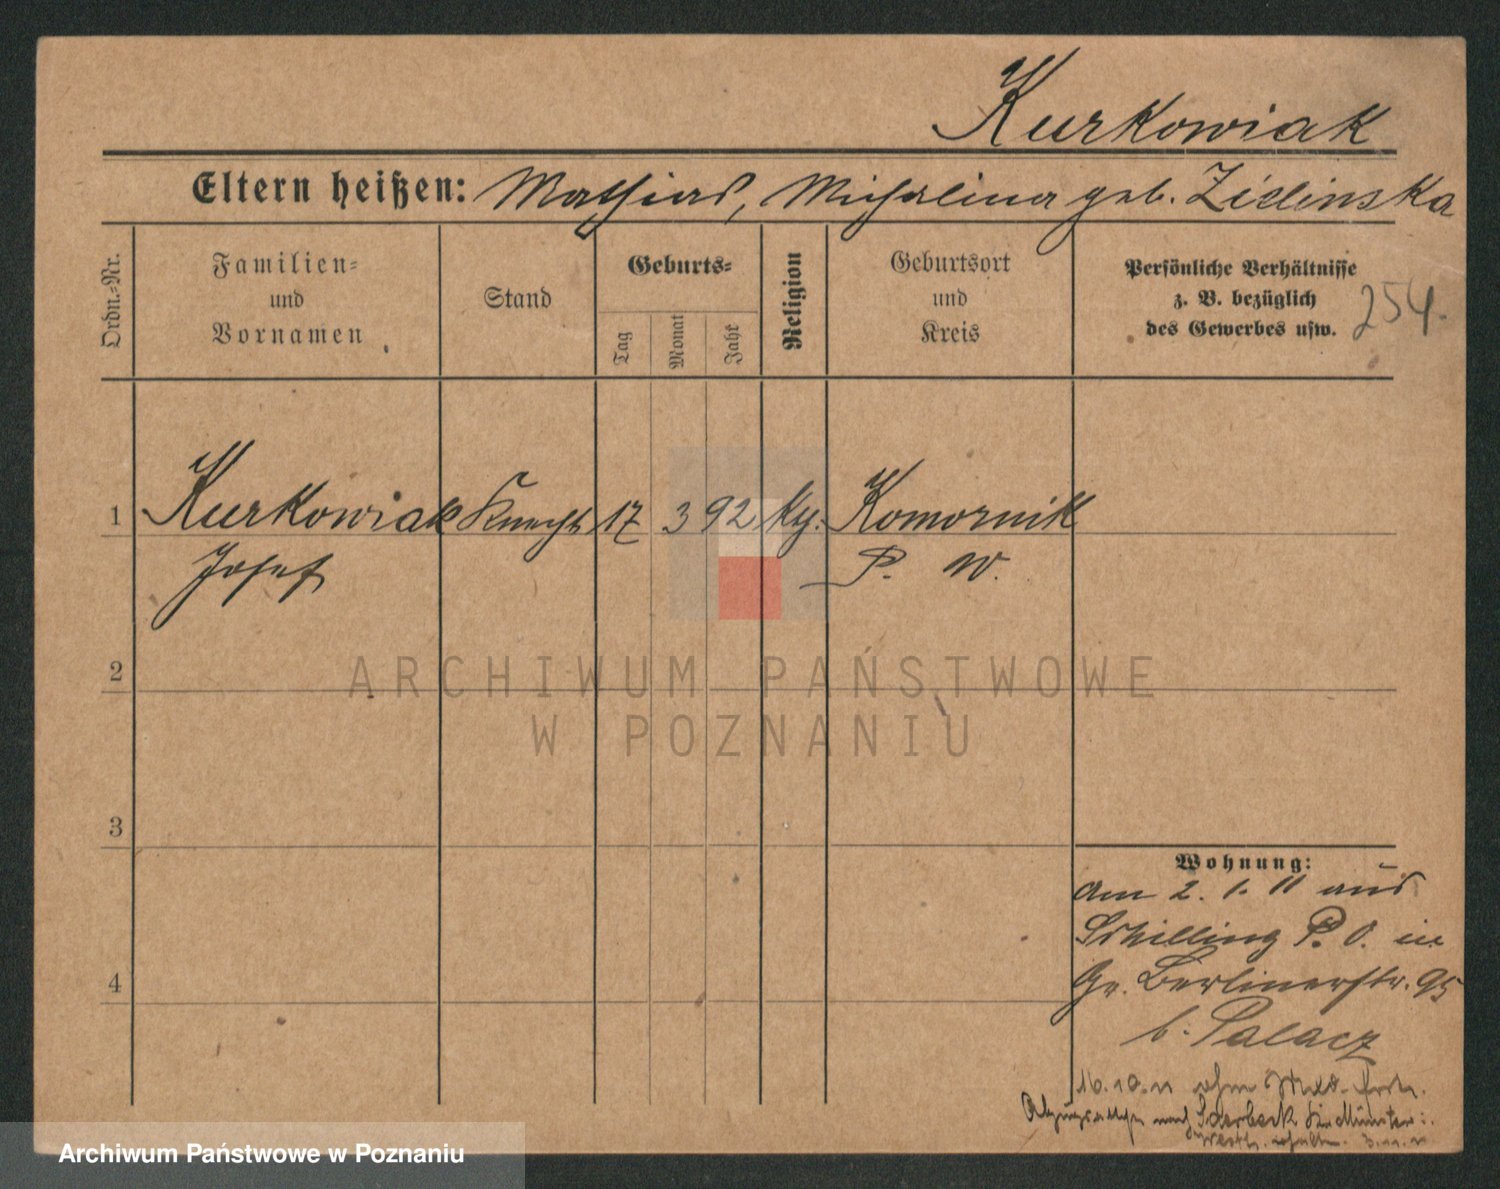 Kurkowiak
Eltern heißen: Mathias, Michalina geb. Zielinska
Ordn.-Nr.
Familien-
und
Vornamen
Stand
Geburts-
Tag
Monat
Jahr
Religion
Geburtsort
und
Kreis
Persönliche Verhältnisse
z. B. bezüglich
des Gewerbes usw.
254.
1 Kurkowiak Knecht 17 3 92 kg. Komornik
Josef P. W.
2
ARCHIWUM PAŃSTWOWE
W POZNANIU
3
Wohnung:
am 2. 1. 11 aus
Schilling P. O. in
Gr. Berlinerstr. 95
b. Palacz
4
16. 10. 11 ohne
nach Münster
3. 11. 11
Archiwum Państwowe w Poznaniu